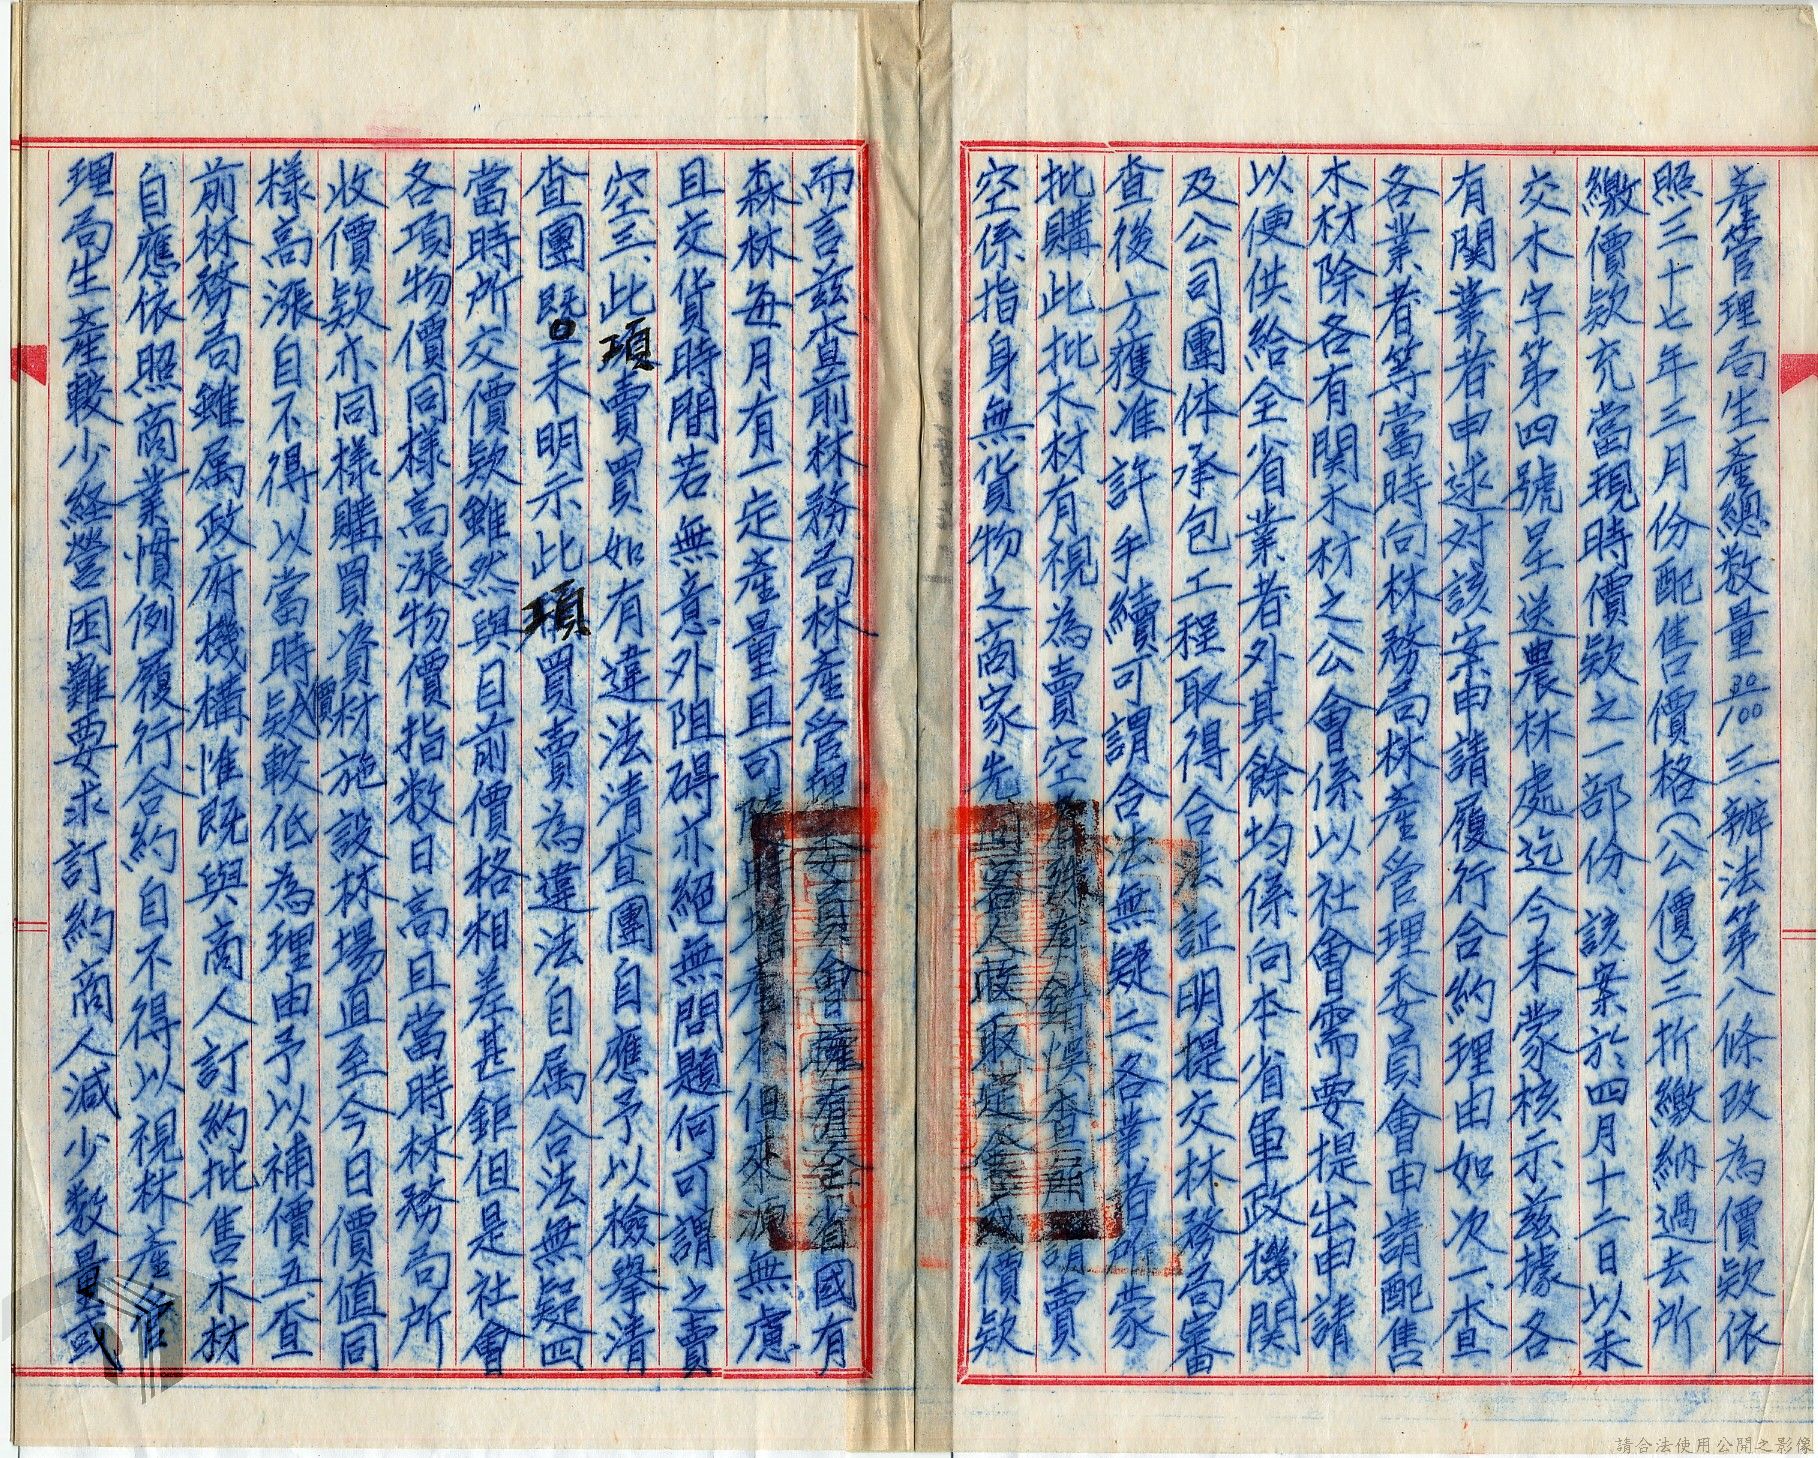 產管理局生產總数量30/100三、辦法第八條改為價欵依
照三十七年三月份配售價格（公價）三折繳納過去所
繳價欵充當現時價欵之一部份、該案於四月十二日以未
交木字第四號呈送農林處迄今未蒙核示茲據各
有関業者申述对該案申請履行合約理由如次一、查
各業者等當時向林務局林產管理委員會申請配售
木材除各有関木材之公會係以社會需要提出申請
以便供給全省業者外其餘均係向本省軍政機関
及公司團体承包工程取得合法証明提交林務局審
查後方獲准許手續可謂合法無疑二、各業者所蒙
批購此批木材有視為賣空殊有錯悞查所謂賣
空係指身無貨物之商家先向客人取定金或價欵
而言茲查前林務局林產管理委員會擁有全省國有
森林每月有一定產量且可不但來源無慮
且交貨時間若無意外阻碍亦絕無問題何可謂之賣
空三、此項賣買如有違法清查團自應予以檢舉清
查團既未明示此項買賣為違法自属合法無疑四
當時所交價欵雖然與目前價格相差甚鉅但是社會
各項物價同樣高漲物價指数日高且當時林務局所
收價欵亦同樣購買資材施設林場直至今日價值同
樣高漲自不得以當時價欵較低為理由予以補價五、查
前林務局雖属政府機構惟既與商人訂約批售木材
自應依照商業慣例履行合約自不得以視林產管
理局生產較少経營困難要求訂約商人減少数量或
請合法使用公開之影像